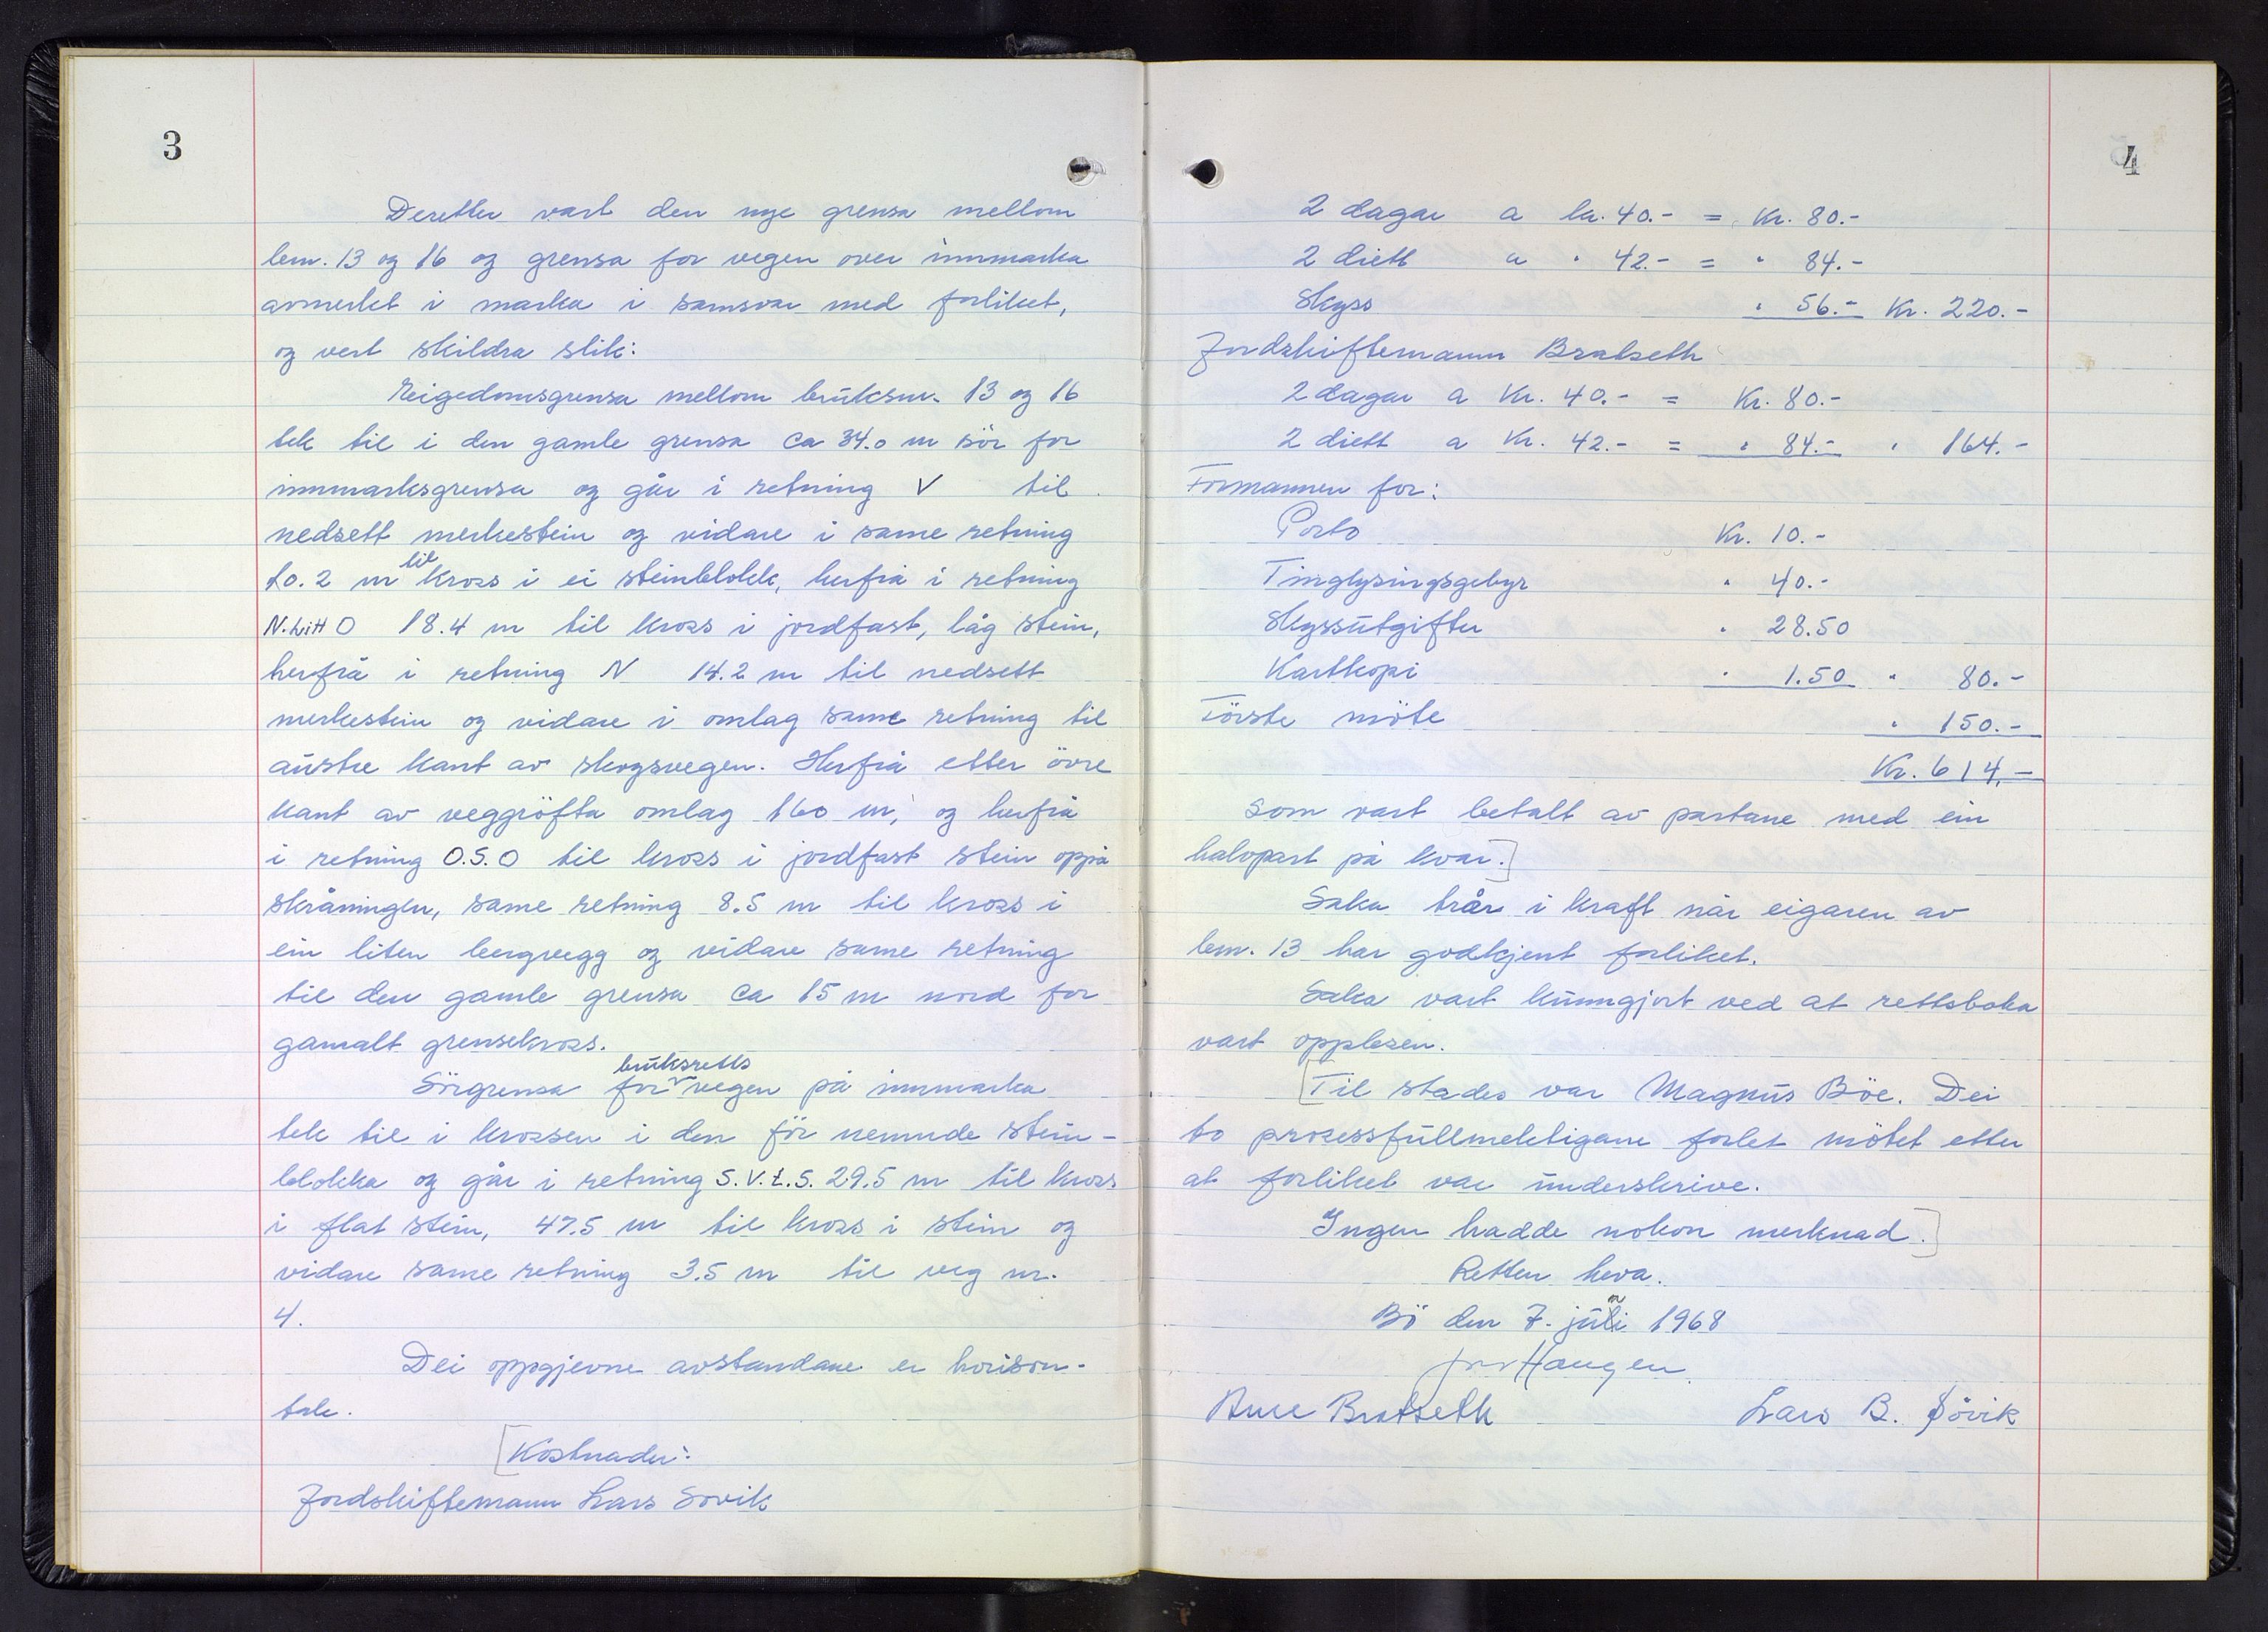 3
Deretter vart den nye grensa mellom
bnr. 13 og 16 og grensa for vegen over innmarka
avmerket i marka i samsvar med forliket,
og vert skildra slik:
Eigedomsgrensa mellom bruksnr. 13 og 16
tek til i den gamle grensa ca 34.0 m sör for
innmarksgrensa og går i retning V til
nedsett merkestein og vidare i same retning
10.2 m til kross i ei steinblokk, herfrå i retning
N. litt O 18.4 m til kross i jordfast, låg stein,
herfrå i retning N 14.2 m til nedsett
merkestein og vidare i omlag same retning til
austre kant av skogsvegen. Herfrå etter övre
kant av veggröfta omlag 160 m, og herfrå
i retning O.S.O til kross i jordfast stein oppå
skråningen, same retning 8.5 m til kross i
ein liten bergvegg og vidare same retning
til den gamle grensa ca 15 m nord for
gamalt grensekross.
Sörgrensa for bruksretts vegen på innmarka
tek til i krossen i den för nemnde stein-
blokka og går i retning S.V.t.S. 29.5 m til kross
i flat stein, 47.5 m til kross i stein og
vidare same retning 3.5 m til veg nr.
4.
Dei oppgjevne avstandane er horison-
tale.
[Kostnader:
Jordskiftemann Lars Sovik
4
2 dagar a kr. 40.- = Kr. 80.-
2 diett a " 42.- = " 84.-
Skyss " 56.- Kr. 220.-
Jordskiftemann Bratseth
2 dagar a Kr. 40.- = Kr. 80.-
2 diett a Kr. 42.- = " 84.- " 164.-
Formannen for:
Porto Kr. 10.-
Tinglysingsgebyr " 40.-
Skyssutgifter " 28.50
Kartkopi " 1.50 " 80.-
Förste möte " 150.-
Kr. 614,-
som vart betalt av partane med ein
halvpart på kvar.]
Saka trår i kraft når eigaren av
bnr. 13 har godkjent forliket.
Saka vart kunngjort ved at rettsboka
vart opplesen.
[Til stades var Magnus Böe. Dei
to prosessfullmektigane forlet mötet etter
at forliket var underskrive.
Ingen hadde nokon merknad.]
Retten heva.
Bö den 7. juni 1968
Haugen
Arne Bratseth Lars B. Sövik